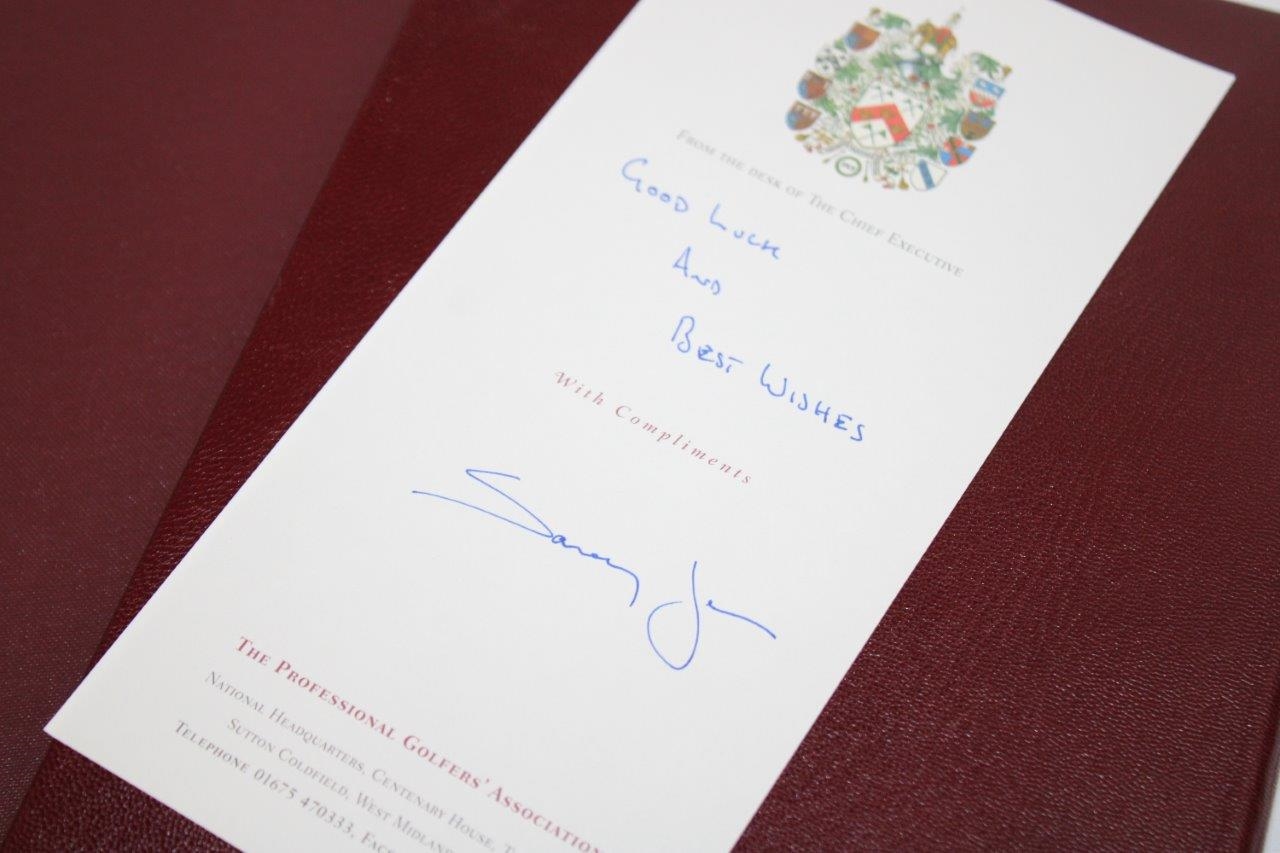 FROM THE DESK OF THE CHIEF EXECUTIVE
GOOD LUCK
AND
BEST WISHES
With Compliments
Sandy Jones
THE PROFESSIONAL GOLFERS' ASSOCIATION
NATIONAL HEADQUARTERS, CENTENARY HOUSE,
SUTTON COLDFIELD, WEST
TELEPHONE 01675 470333,